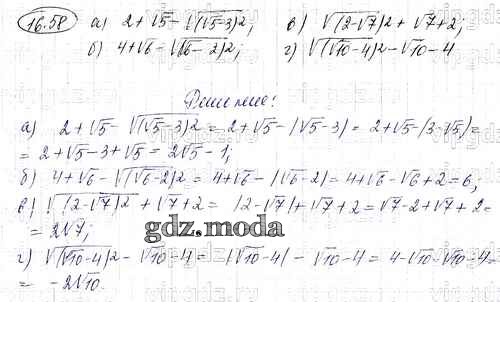 16.58 а) 2+√5-√(√5-3)²; в) √(2-√7)²+√7+2;
б) 4+√6-√(√6-2)²; г) √(√10-4)²-√10-4
Решение:
а) 2+√5-√(√5-3)²=2+√5-|√5-3|=2+√5-(3-√5)=
=2+√5-3+√5=2√5-1;
б) 4+√6-√(√6-2)²=4+√6-|√6-2|=4+√6-√6+2=6;
в) √(2-√7)²+√7+2=|2-√7|+√7+2=√7-2+√7+2=
=2√7;
gdz.moda
г) √(√10-4)²-√10-4=|√10-4|-√10-4=4-√10-√10-4=
=-2√10.